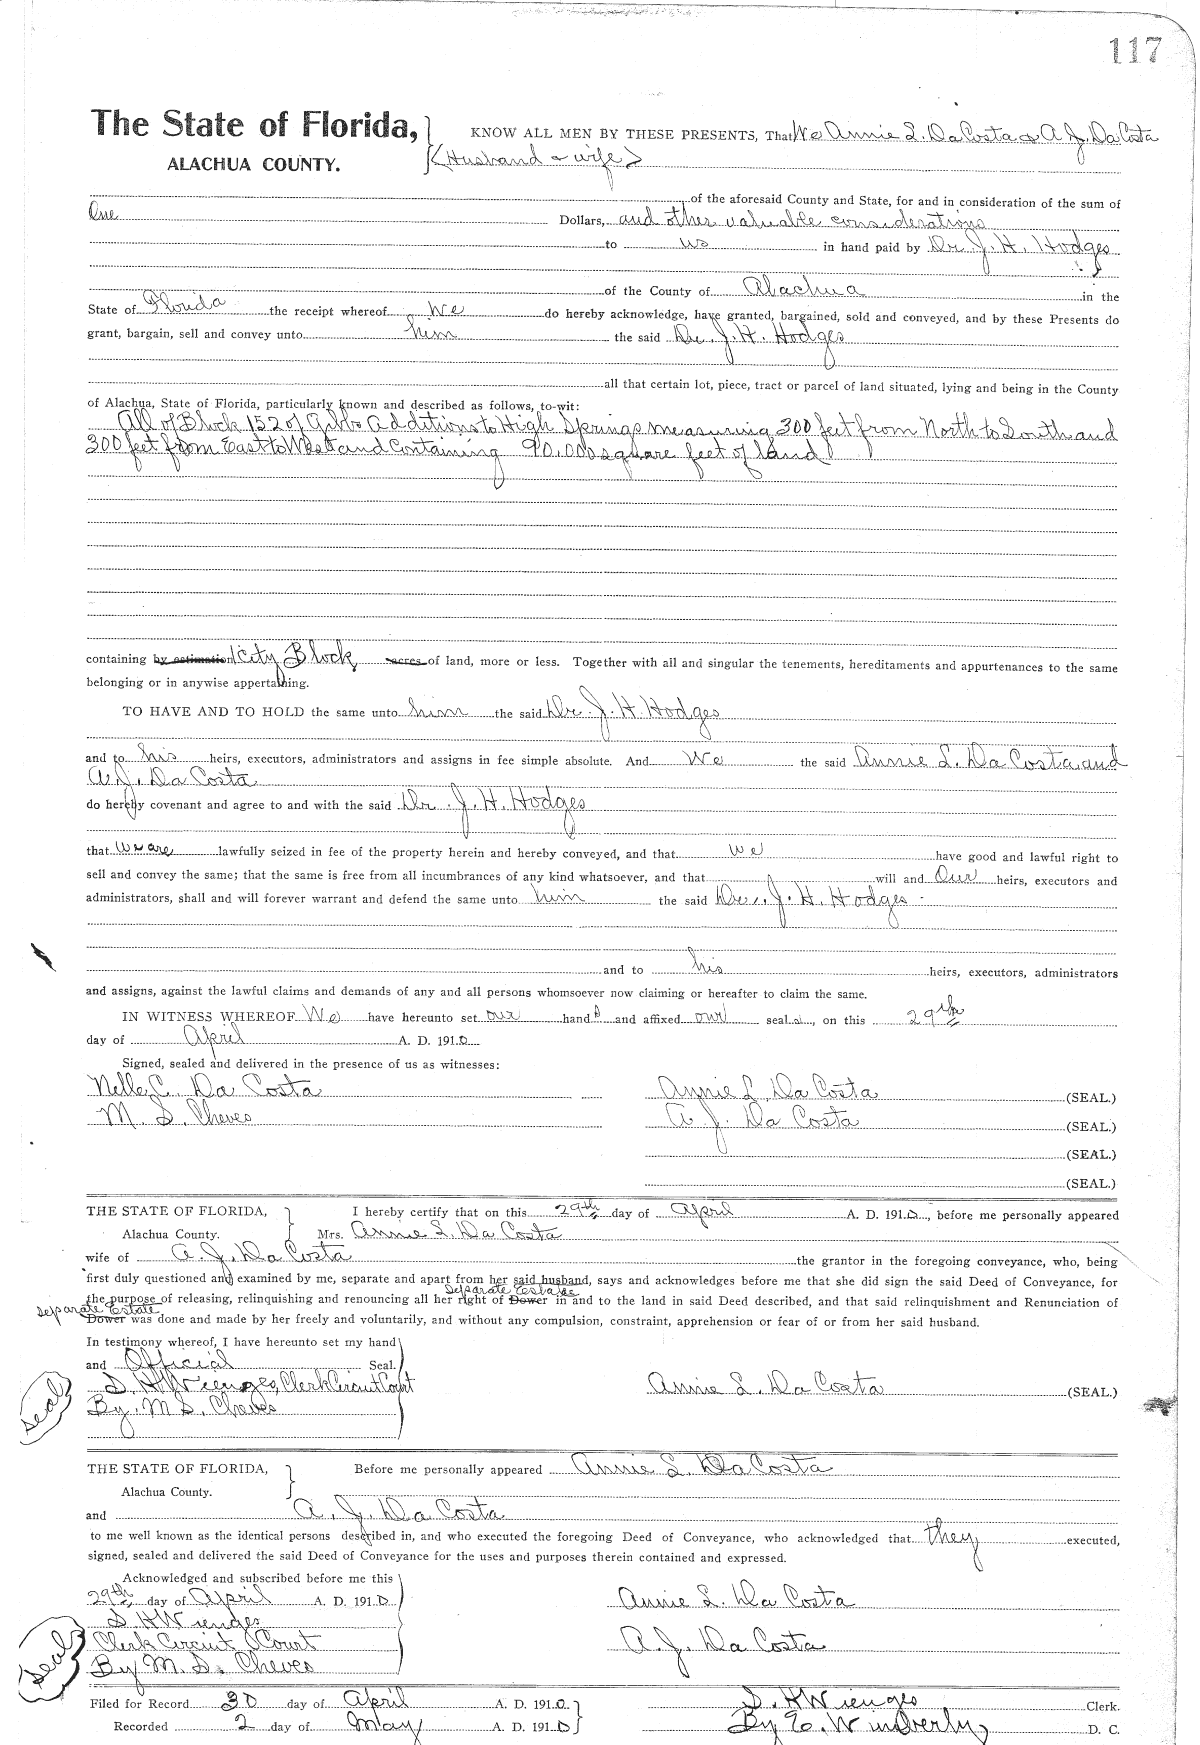 117
The State of Florida, KNOW ALL MEN BY THESE PRESENTS, That We Annie L. DaCosta & A. J. DaCosta
ALACHUA COUNTY. (Husband & wife)
of the aforesaid County and State, for and in consideration of the sum of
One Dollars, and other valuable considerations
to us in hand paid by Dr. J. H. Hodges
of the County of Alachua in the
State of Florida the receipt whereof We do hereby acknowledge, have granted, bargained, sold and conveyed, and by these Presents do
grant, bargain, sell and convey unto him the said Dr. J. H. Hodges
all that certain lot, piece, tract or parcel of land situated, lying and being in the County
of Alachua, State of Florida, particularly known and described as follows, to-wit:
All of Block 152 of Gibbs Additions to High Springs measuring 300 feet from North to South and
300 feet from East to West and Containing 90,000 square feet of land
containing by estimation 1 City Block acres of land, more or less. Together with all and singular the tenements, hereditaments and appurtenances to the same
belonging or in anywise appertaining.
TO HAVE AND TO HOLD the same unto him the said Dr. J. H Hodges
and to his heirs, executors, administrators and assigns in fee simple absolute. And We the said Annie L. Da Costa and
A. J. Da Costa
do hereby covenant and agree to and with the said Dr. J. H. Hodges
that we are lawfully seized in fee of the property herein and hereby conveyed, and that we have good and lawful right to
sell and convey the same; that the same is free from all incumbrances of any kind whatsoever, and that will and Our heirs, executors and
administrators, shall and will forever warrant and defend the same unto him the said Dr. J. H. Hodges
and to his heirs, executors, administrators
and assigns, against the lawful claims and demands of any and all persons whomsoever now claiming or hereafter to claim the same.
IN WITNESS WHEREOF We have hereunto set our hands and affixed our seals, on this 29th
day of April A. D. 1910
Signed, sealed and delivered in the presence of us as witnesses:
Nelle C. Da Costa Annie L. Da Costa (SEAL.)
M. S. Cheves A. J. Da Costa (SEAL.)
(SEAL.)
(SEAL.)
THE STATE OF FLORIDA, I hereby certify that on this 29th day of April A. D. 1910, before me personally appeared
Alachua County. Mrs. Annie L. Da Costa
wife of A. J. Da Costa the grantor in the foregoing conveyance, who, being
first duly questioned and examined by me, separate and apart from her said husband, says and acknowledges before me that she did sign the said Deed of Conveyance, for
Separate Estate
the purpose of releasing, relinquishing and renouncing all her right of Dower in and to the land in said Deed described, and that said relinquishment and Renunciation of
Separate Estate
Dower was done and made by her freely and voluntarily, and without any compulsion, constraint, apprehension or fear of or from her said husband.
In testimony whereof, I have hereunto set my hand
and Official Seal.
S. H Wienges, Clerk Circuit Court Annie L. Da Costa (SEAL.)
Seal By. M S. Cheves
THE STATE OF FLORIDA, Before me personally appeared Annie L. Da Costa
Alachua County.
and A. J. Da Costa
to me well known as the identical persons described in, and who executed the foregoing Deed of Conveyance, who acknowledged that they executed,
signed, sealed and delivered the said Deed of Conveyance for the uses and purposes therein contained and expressed.
Acknowledged and subscribed before me this
29th day of April A. D. 1910 Annie L. Da Costa
S. H Wienges
Clerk Circuit Court A. J. Da Costa
Seal By M. S. Cheves
Filed for Record 30 day of April A. D. 1910. S. H Wienges Clerk.
Recorded 2 day of May A. D. 1910 By E. Wimberly D. C.